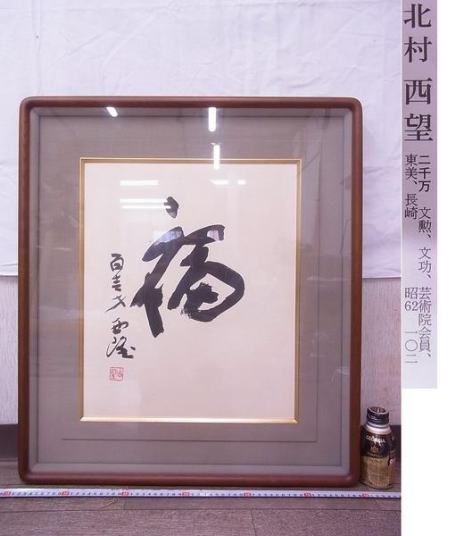 北村 西望
二千万 文勲、文功、芸術院会員、
東美、長崎 昭62 一〇二
福
百壱才 西望